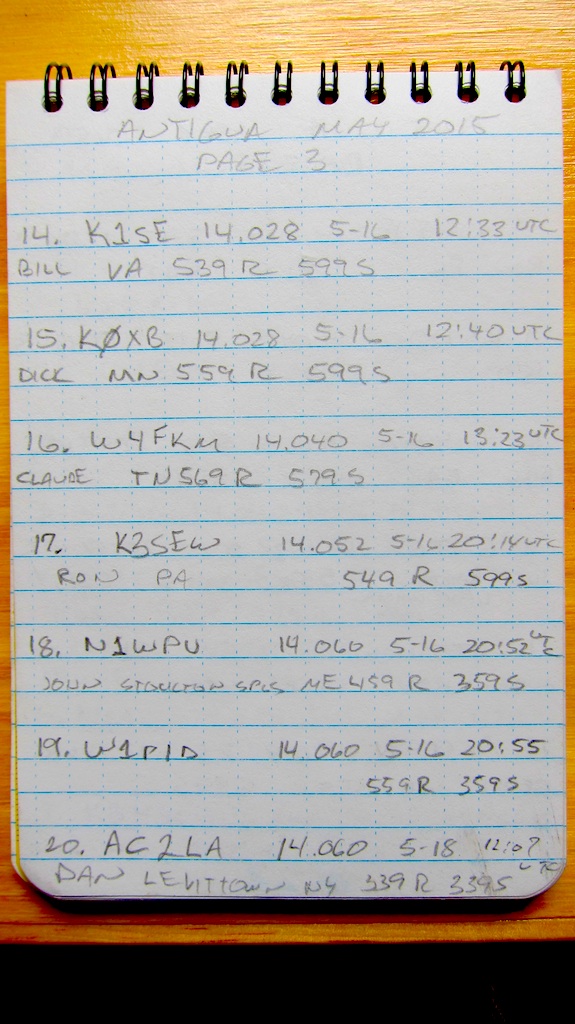 ANTIGUA MAY 2015
PAGE 3
14. K1SE 14.028 5-16 12:33 UTC
BILL VA 539 R 599 S
15. KØXB 14.028 5-16 12:40 UTC
DICK MN 559 R 599 S
16. W4FKM 14.040 5-16 13:23 UTC
CLAUDE TN 569 R 579 S
17. K3SEW 14.052 5-16 20:14 UTC
RON PA 549 R 599 S
18. N1WPU 14.060 5-16 20:52 UTC
JOHN SPGS ME 459 R 359 S
19. W1PID 14.060 5-16 20:55
559 R 359 S
20. AC2LA 14.060 5-18 12:07 UTC
DAN LEVITTOWN NY 339 R 339 S